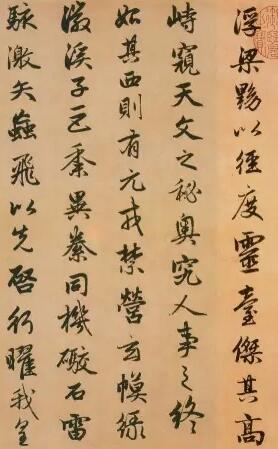 浮梁黝以徑度靈臺傑其高
峙窺天文之秘奥究人事之終
始其西則有元戎禁營玄幙緑
徽溪子巨黍異絭同機礮石雷
駭激矢蝱飛以先啓行曜我皇